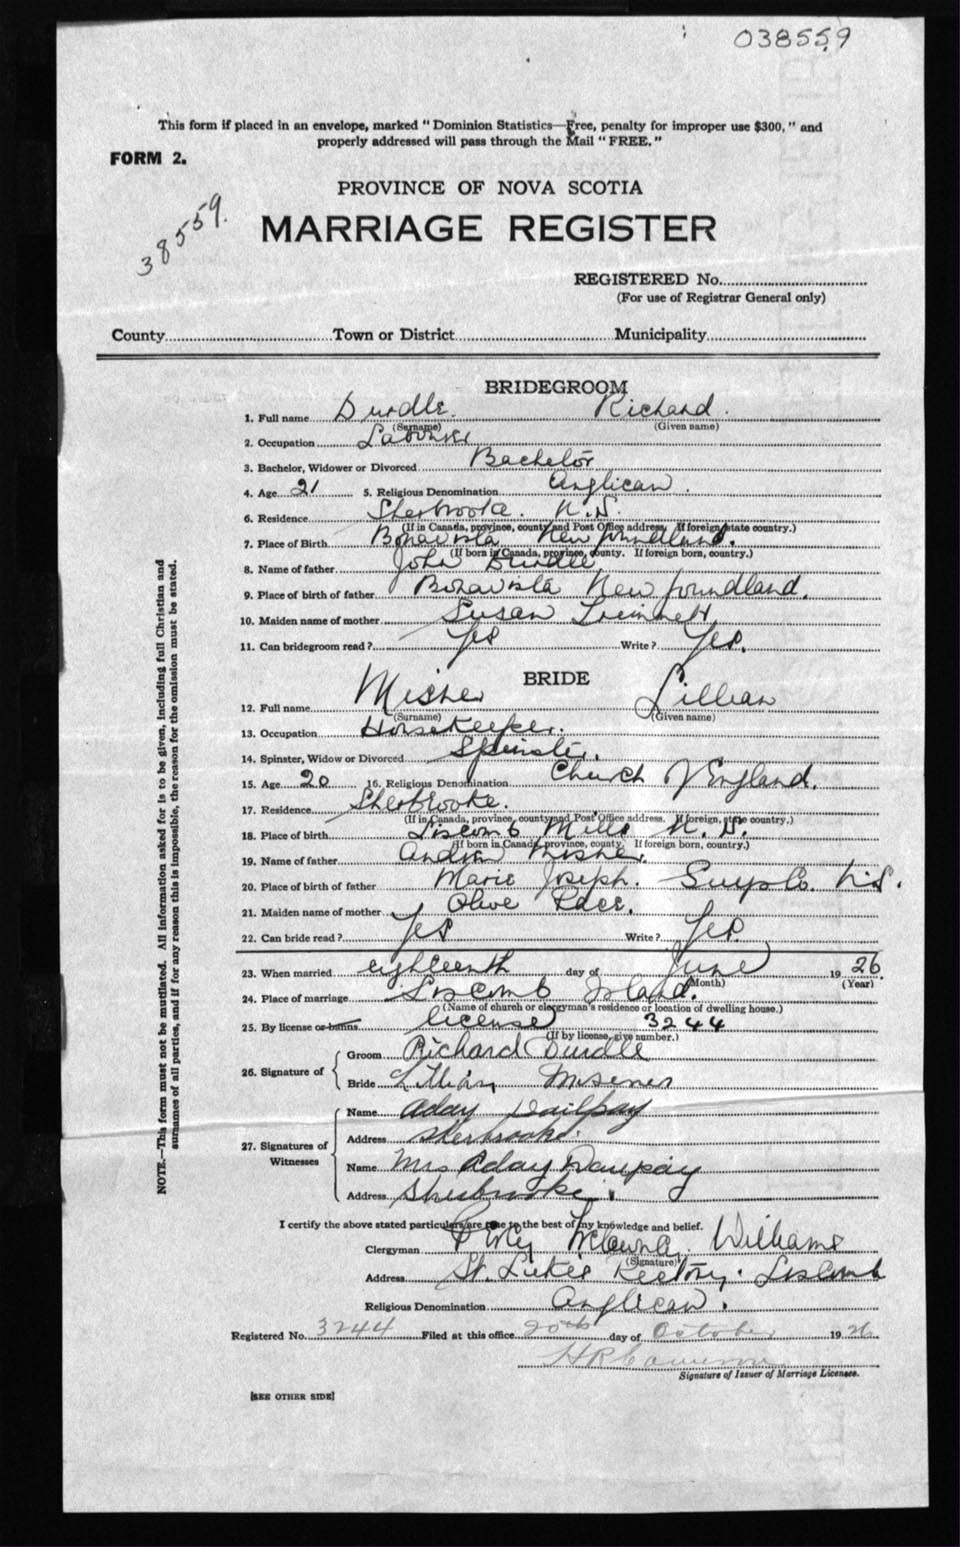 038559
This form if placed in an envelope, marked "Dominion Statistics—Free, penalty for improper use $300," and
properly addressed will pass through the Mail "FREE."
FORM 2.
38559.
PROVINCE OF NOVA SCOTIA
MARRIAGE REGISTER
REGISTERED No.
(For use of Registrar General only)
County Town or District Municipality
BRIDEGROOM
1. Full name Durdle. Richard.
(Surname) (Given name)
2. Occupation Labourer
3. Bachelor, Widower or Divorced Bachelor
4. Age 21 5. Religious Denomination Anglican.
6. Residence Sherbrooke. N.S.
(If in Canada, province, county and Post Office address. If foreign, state country.)
7. Place of Birth Bonavista Newfoundland.
(If born in Canada, province, county. If foreign born, country.)
8. Name of father John Durdle
9. Place of birth of father Bonavista Newfoundland.
10. Maiden name of mother Susan
11. Can bridegroom read? Yes Write? Yes.
BRIDE
12. Full name Misner Lillian
(Surname) (Given name)
13. Occupation Housekeeper.
14. Spinster, Widow or Divorced Spinster.
15. Age 20 16. Religious Denomination Church of England.
17. Residence Sherbrooke.
(If in Canada, province, county and Post Office address. If foreign, state country.)
18. Place of birth Liscomb Mills N.S.
(If born in Canada, province, county. If foreign born, country.)
19. Name of father Andrew Misner.
20. Place of birth of father Marie Joseph. Guys Co. N.S.
21. Maiden name of mother Olive
22. Can bride read? Yes Write? Yes.
23. When married eighteenth day of June 1926
(Month) (Year)
24. Place of marriage Liscomb Island.
(Name of church or clergyman's residence or location of dwelling house.)
25. By license or banns license 3244
(If by license, give number.)
26. Signature of
Groom Richard Durdle
Bride Lillian Misener
27. Signatures of Witnesses
Name Aday
Address Sherbrooke.
Name Mrs Aday
Address Sherbrooke.
I certify the above stated particulars are true to the best of my knowledge and belief.
Clergyman Williams
(Signature)
Address St. Luke's Rectory. Liscomb
Religious Denomination Anglican.
Registered No. 3244 Filed at this office 20th day of October 1926
H R Cameron
Signature of Issuer of Marriage Licenses.
[SEE OTHER SIDE]
NOTE.—This form must not be mutilated. All information asked for is to be given, including full Christian and
surnames of all parties, and if for any reason this is impossible, the reason for the omission must be stated.